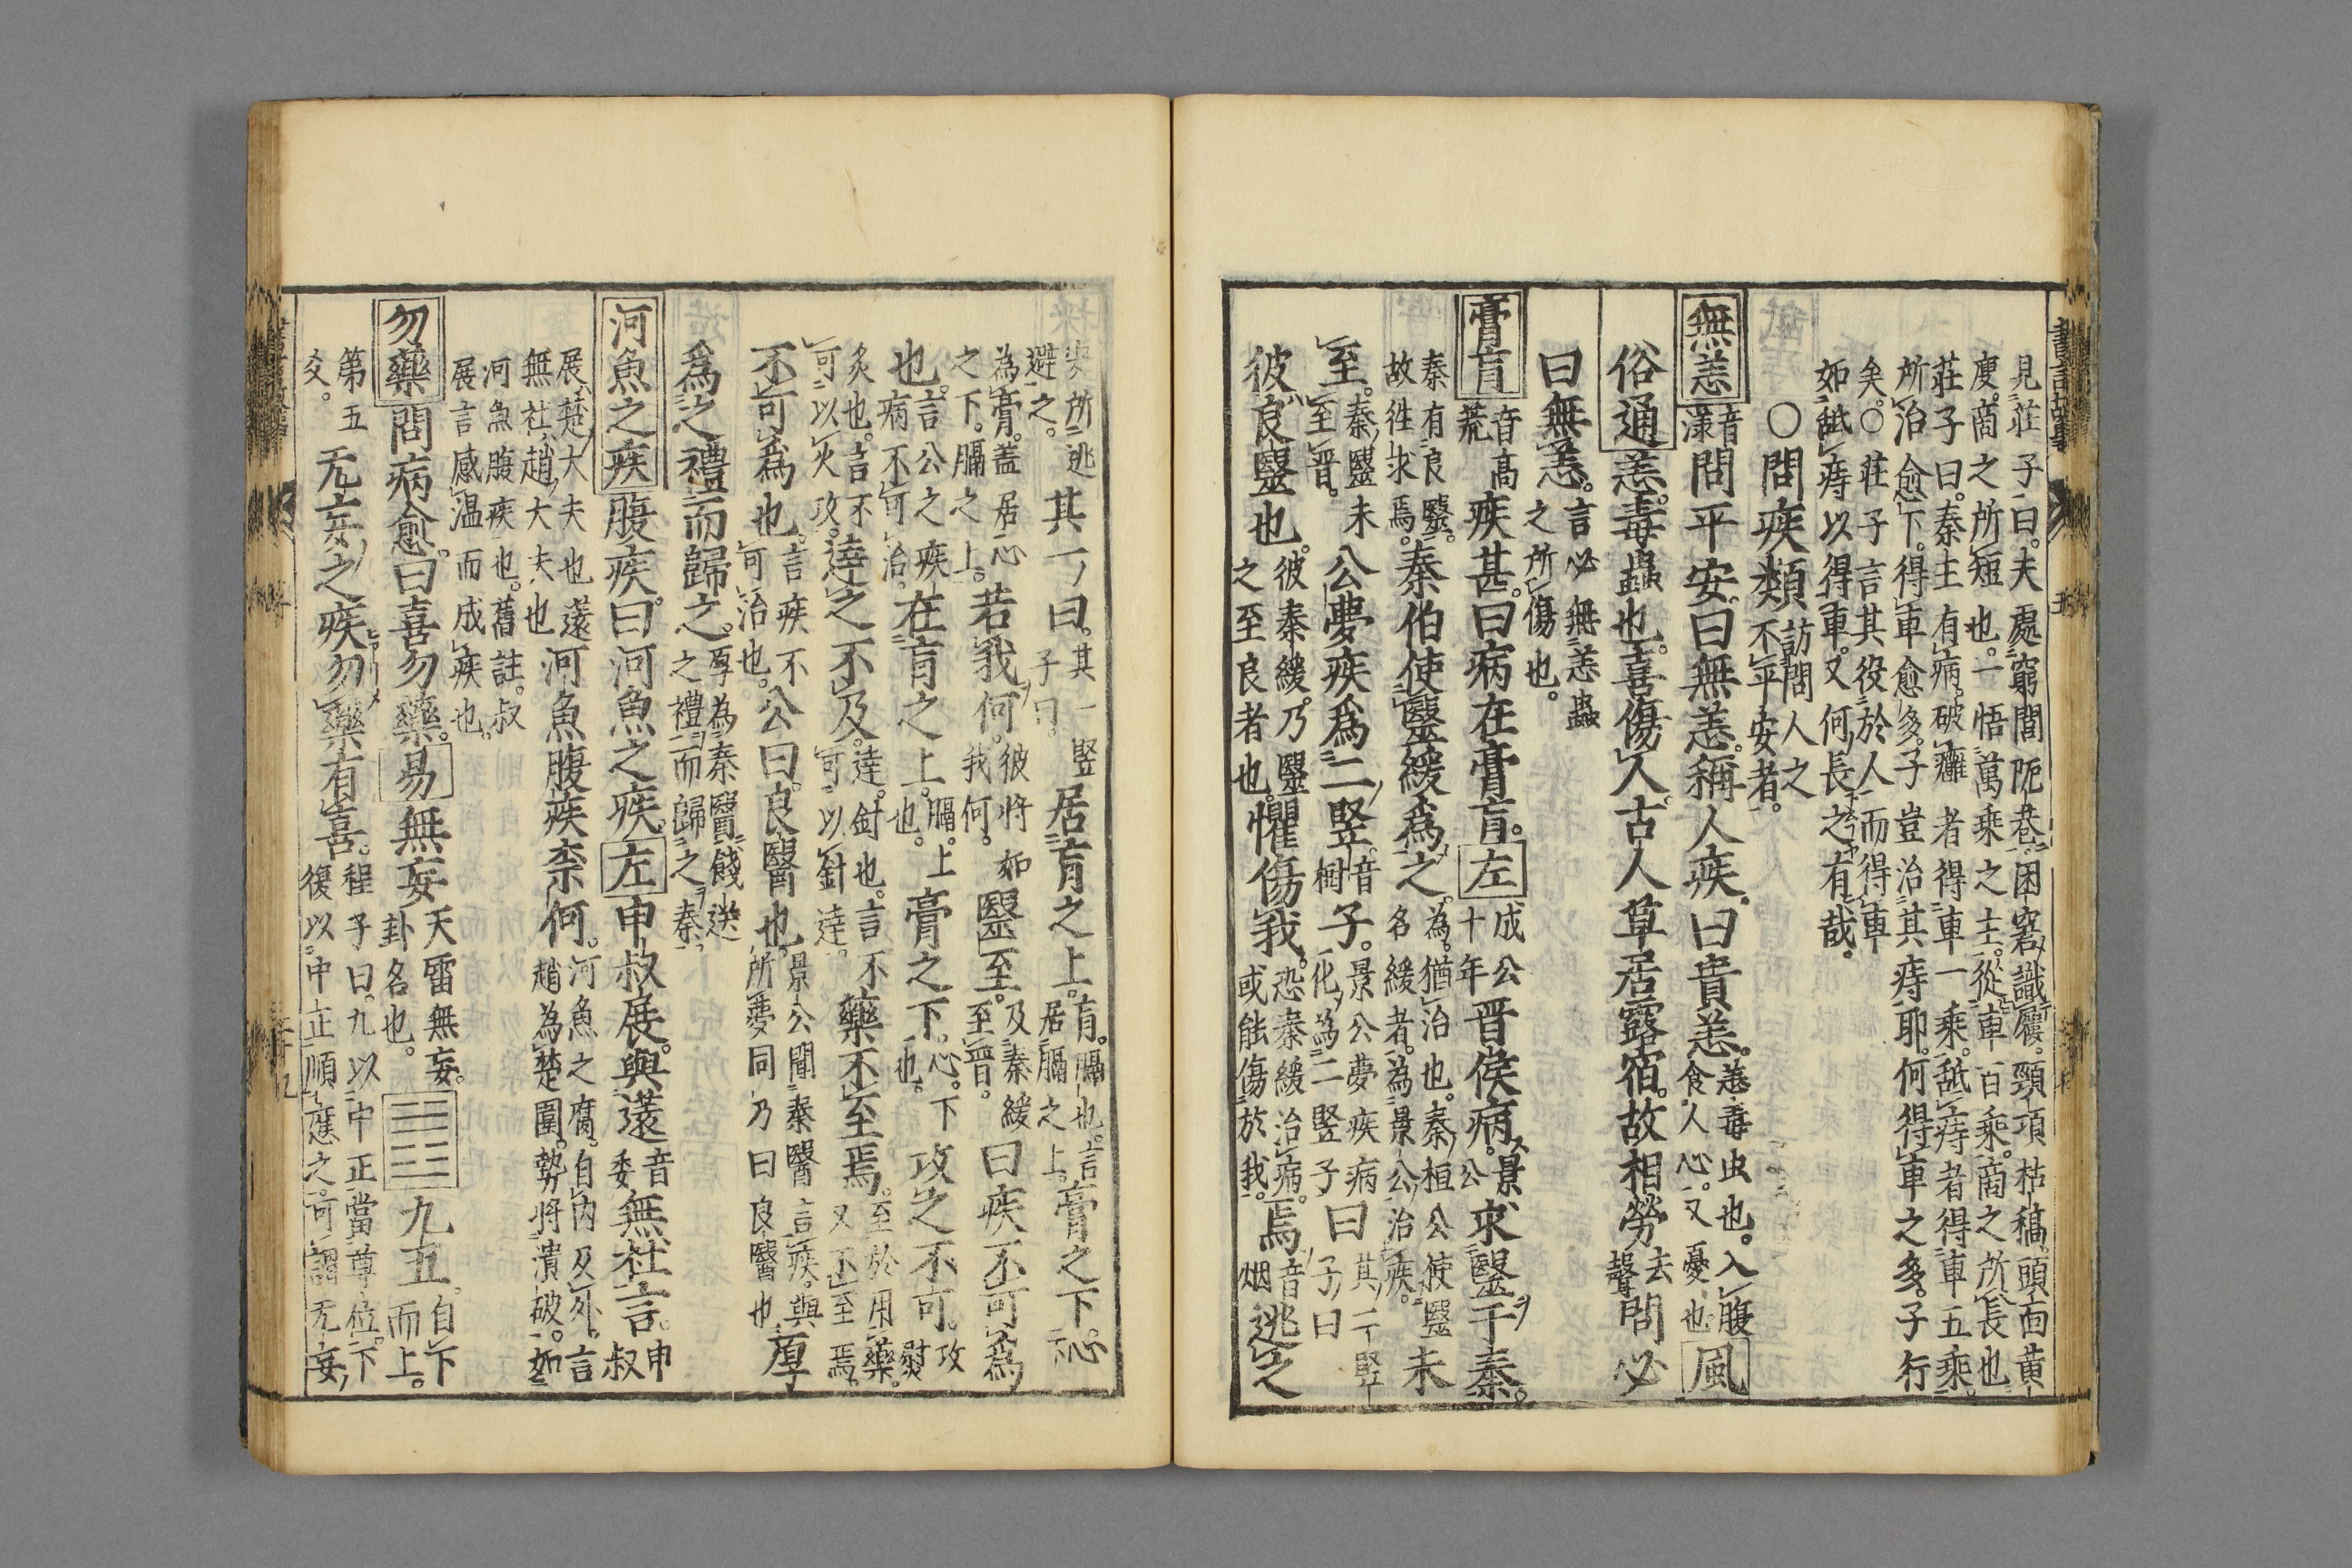 見莊子曰。夫處窮閭阨巷。困窘識屨。頸項枯槁。頭面黃
庾。商之所短也。一悟萬乘之主。從車百乘。商之所長也
莊子曰。秦主有病。破癰者得車一乘。舐痔者得車五乘。
所治愈下。得車愈多。子豈治其痔耶。何得車之多。子行
矣。○莊子言其役於人而得車
如舐痔以得車。又何長之有哉。
○問疾類 訪問人之
不平安者。
無恙 音
漾 問平安。曰無恙。稱人疾。曰貴恙。 恙毒虫也。入腹
食人心。又憂也 風
俗通 恙。毒蟲也。喜傷人。古人草居露宿。故相勞 去
聲 問必
曰無恙。 言必無恙蟲
之所傷也。
膏肓 音高
荒 疾甚。曰病在膏肓。 左 成公
十年 晋侯病。 景
公 求毉于秦。
秦有良毉。
故徃求焉。 秦伯使毉緩為之。 為。猶治也。秦桓公使毉
名緩者。為景公治疾。 未
至。 秦毉未
至晋。 公夢疾爲二竪 音
樹 子。 景公夢疾病
化為二竪子 曰 其一竪
子曰
彼良毉也。 彼秦緩。乃毉
之至良者也。 懼傷我。 恐秦緩治病。
或能傷於我。 焉 音
烟 逃之
所逃
避之。 其一曰。 其一竪
子曰。 居肓之上。 肓。膈也。言
居膈之上。 膏之下。 心
為膏。蓋居心
之下。膈之上。 若我何。 彼將如
我何。 毉至。 及秦緩
至晋。 曰疾不可爲
也。 言公之疾
病不可治。 在肓之上。 膈。上
也。 膏之下。 心。下
也。 攻之不可。 攻
熨
灸也。言不
可以灭攻。 達之不及。 達。針也。言不
可以針達。 藥不至焉。 至於用藥。
又不至焉。
不可爲也。 言疾不
可治也。 公曰。良醫也。 景公聞秦醫言疾。與
所夢同乃曰良醫也 厚
爲之禮而歸之。 厚為秦醫餞送
之禮而歸之秦
河魚之疾 腹疾。曰河魚之疾。 左 申叔展。與薳 音
委 無社言。 申
叔
展。楚大夫也薳
無社。趙大夫也 河魚腹疾柰何。 河魚之腐。自内及外。言
趙為楚圍。勢將潰破。如
河魚腹疾也。舊註。叔
展言感温而成疾也。
勿藥 問病愈。曰喜勿藥。 易 無妄 天雷無妄。
卦名也。 ䷘ 九五 自下
而上。
第五
爻。 无妄之疾勿藥有喜。 程子曰。九以中正當尊位。下
復以中正順應之。可謂无妄